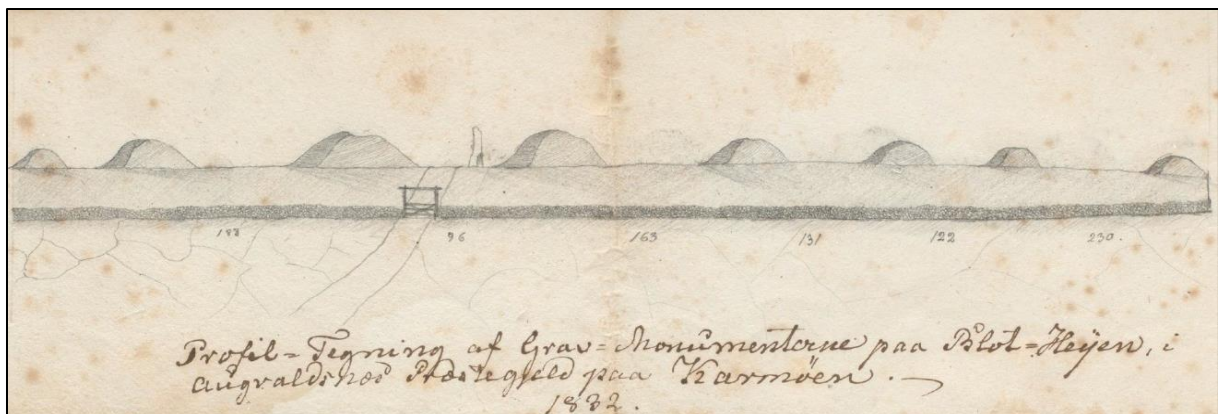 183 96 163 131 122 230.
Profil=Tegning af Grav=Monumenterne paa Blot=Heÿen, i
Augvaldsnæs Præstegjeld paa Karmøen.
1832.